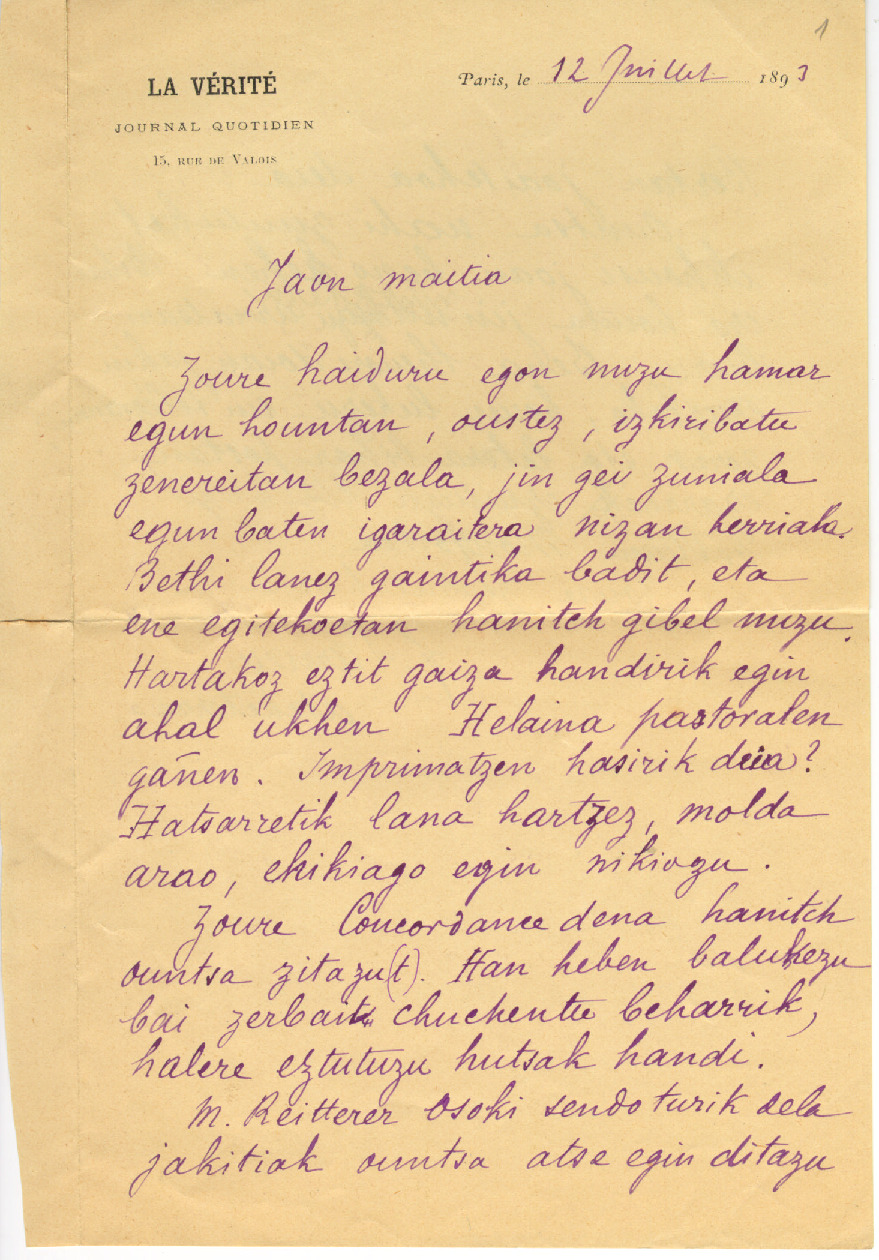 1
LA VÉRITÉ
JOURNAL QUOTIDIEN
15, RUE DE VALOIS
Paris, le 12 Juillet 1893
Jaon maitia
Zoure haiduru egon nuzu hamar
egun hountan, oustez, izkiribatu
zenereitan bezala, jin gei zuniala
egun baten igaraitera nizan herriala.
Bethi lanez gaintika badit, eta
ene egitekoetan hanitch gibel nuzu.
Hartakoz eztit gaiza handirik egin
ahal ukhen Helaina pastoralen
gañen. Imprimatzen hasirik deia?
Hatsarretik lana hartzez, molda
arao, ekikiago egin nikiozu.
Zoure Concordance dena hanitch
ountsa zitazu(t). Han heben balukezu
bai zerbait chuchentu beharrik,
halere eztutuzu hutsak handi.
M. Reitterer osoki sendoturik dela
jakitiak ountsa atse egin ditazu